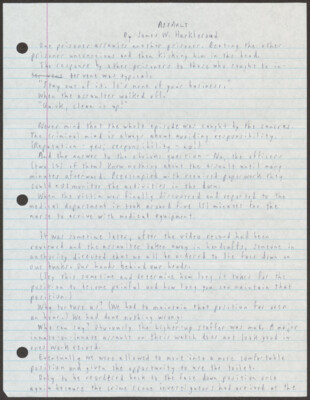 Assault
By James W. Harkleroad
One prisoner assaults another prisoner. Beating the other
prisoner unconscious and then kicking him in the head.
The response by other prisoners to those who sought to in-
tervene was typical.
"Stay out of it. It's none of your business."
When the assaulter walked off:
Never mind that the whole episode was caught by the cameras
the criminal mind is always about avoiding responsibility.
(Reparation - yes; responsibility - no!)
And the answer to the obvious question - No, the officers
(two of them) knew nothing about the assault until many
minutes afterward. Preoccupied with required paperwork they
could not monitor the activities in the dorm.
When the victim was finally discovered and reported to the
medical department it took around five (5) minutes for the
nurse to arrive with medical equipment.
It was sometime later, after the video record had been
reviewed and the assailant taken away in handcuffs, someone in
authority directed that we all be ordered to lie face down on
our bunks our hands behind our heads.
Try this sometime and determine how long it takes for the
position to become painful and how long you can maintain that
position.
Why torture us? (We had to maintain that position for over
an hour) We had done nothing wrong.
Who can say? Obviously the higher-up staffer was mad. A major
assault on their watch does not look good in
their work record.
Eventually we were allowed to move into a more comfortable
position and given the opportunity to use the toilet.
Only to be ordered back to the face down position once
again because the crime scene investigators had arrived at the